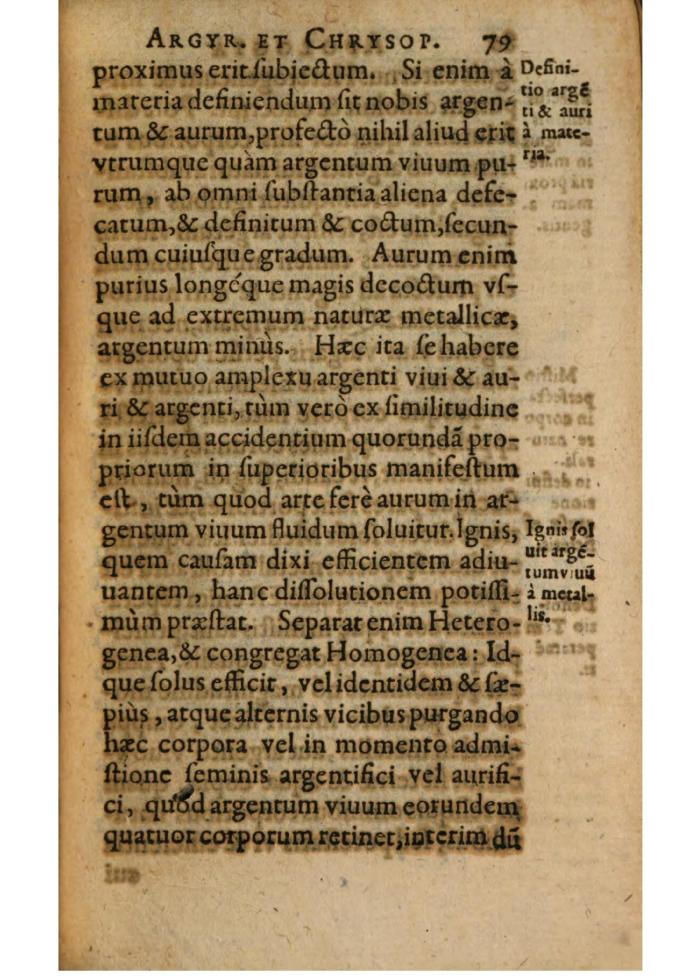 ARGYR. ET CHRYSOP. 79
proximus erit ſubiectum. Si enim à
materia definiendum ſit nobis argen-
tum & aurum, profectò nihil aliud erit
vtrumque quàm argentum viuum pu-
rum, ab omni ſubſtantia aliena defe-
catum, & definitum & coctum, ſecun-
dum cuiuſque gradum. Aurum enim
purius longéque magis decoctum vſ-
que ad extremum naturæ metallicæ,
argentum minùs. Hæc ita ſe habere
ex mutuo amplexu argenti viui & au-
ri & argenti, tùm verò ex ſimilitudine
in iiſdem accidentium quorundã pro-
priorum in ſuperioribus manifeſtum
eſt, tùm quod arte ferè aurum in ar-
gentum viuum fluidum ſoluitur. Ignis,
quem cauſam dixi efficientem adiu-
uantem, hanc diſſolutionem potiſſi-
mùm præſtat. Separat enim Hetero-
genea, & congregat Homogenea: Id-
que ſolus efficit, vel identidem & ſæ-
piùs, atque alternis vicibus purgando
hæc corpora vel in momento admi-
ſtione ſeminis argentifici vel aurifi-
ci, quod argentum viuum eorundem
quatuor corporum retinet, interim dũ
Defini-
tio argẽ
ti & auri
à mate-
ria.
Ignis ſol
uit argẽ-
tum viuũ
à metal-
lis.